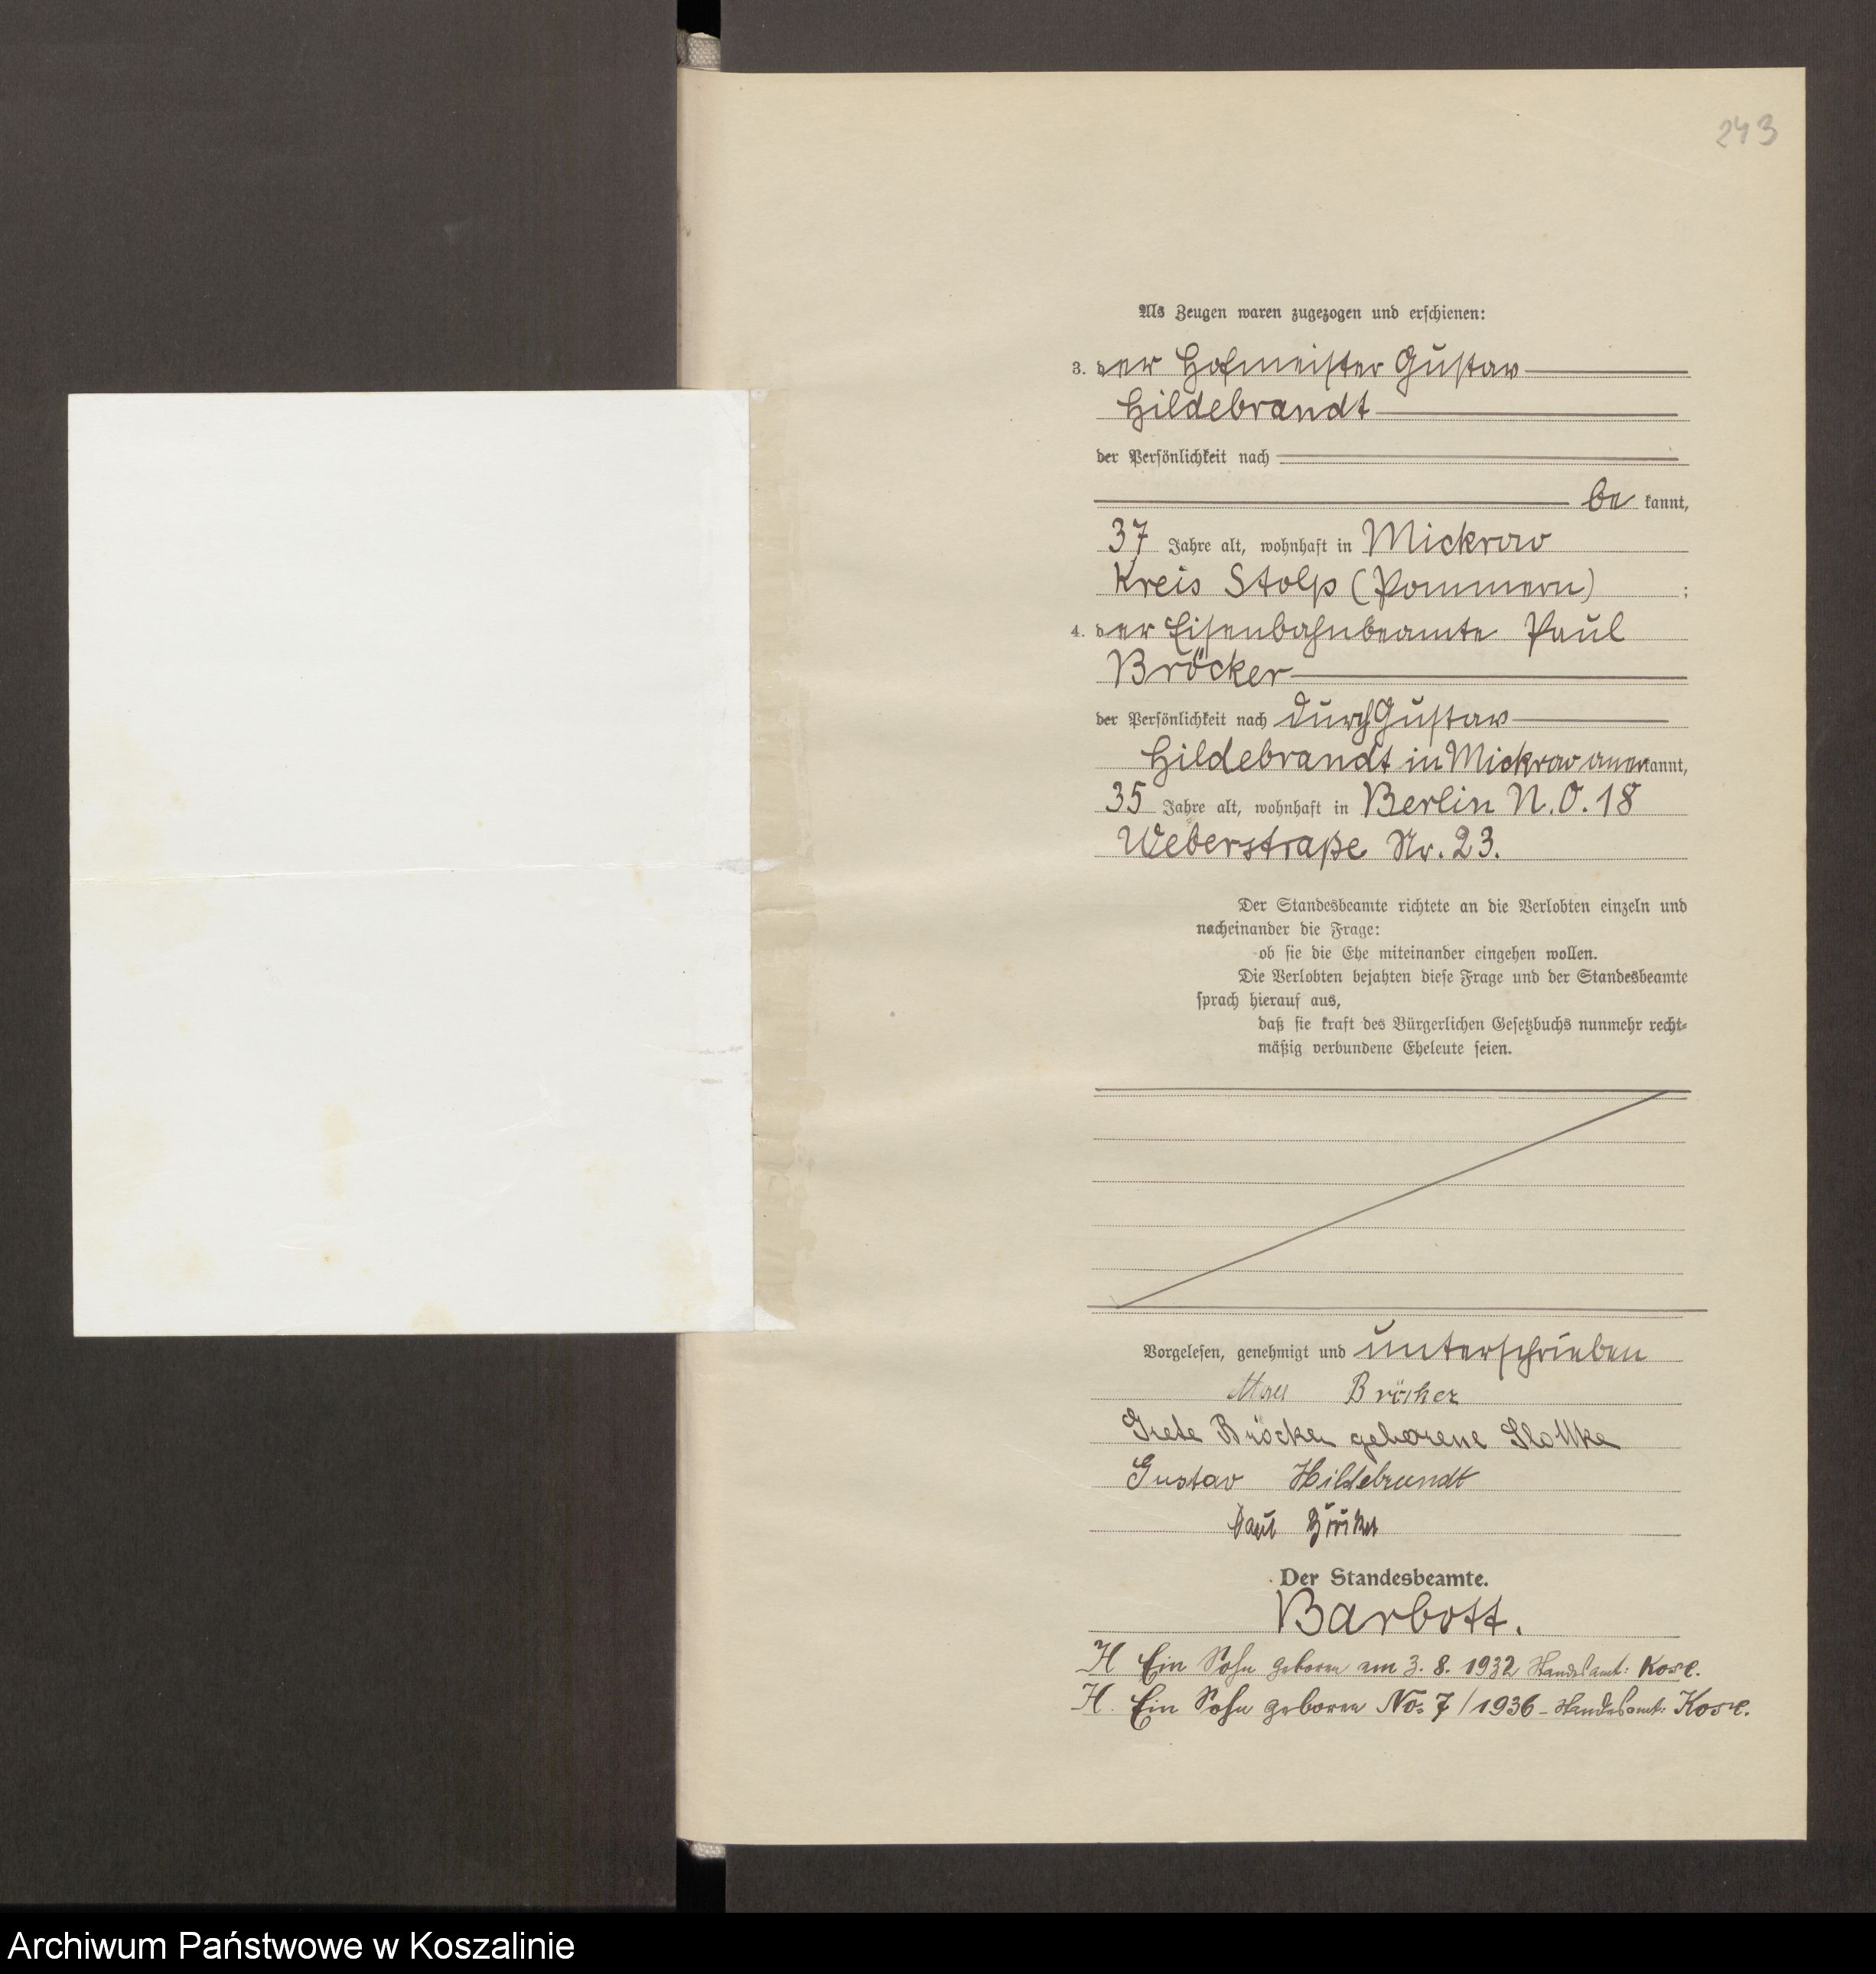 243
Als Zeugen waren zugezogen und erschienen:
3. der Hofmeister Gustav
Hildebrandt
der Persönlichkeit nach
be kannt,
37 Jahre alt, wohnhaft in Mickrow
Kreis Stolp (Pommern) ;
4. der Eisenbahnbeamte Paul
Bröcker
der Persönlichkeit nach durch Gustav
Hildebrandt in Mickrow anerkannt,
35 Jahre alt, wohnhaft in Berlin N.O.18
Weberstraße Nr. 23.
Der Standesbeamte richtete an die Verlobten einzeln und
nacheinander die Frage:
ob sie die Ehe miteinander eingehen wollen.
Die Verlobten bejahten diese Frage und der Standesbeamte
sprach hierauf aus,
daß sie kraft des Bürgerlichen Gesetzbuchs nunmehr recht-
mäßig verbundene Eheleute seien.
Vorgelesen, genehmigt und unterschrieben
Bröcker
Grete Bröcker geborene
Gustav Hildebrandt
Paul Bröcker
Der Standesbeamte.
Barbott.
H Ein Sohn geboren am 3. 8. 1932 Standesamt: Kose.
H. Ein Sohn geboren No: 7/1936 - Standesamt: Kose.
Archiwum Państwowe w Koszalinie